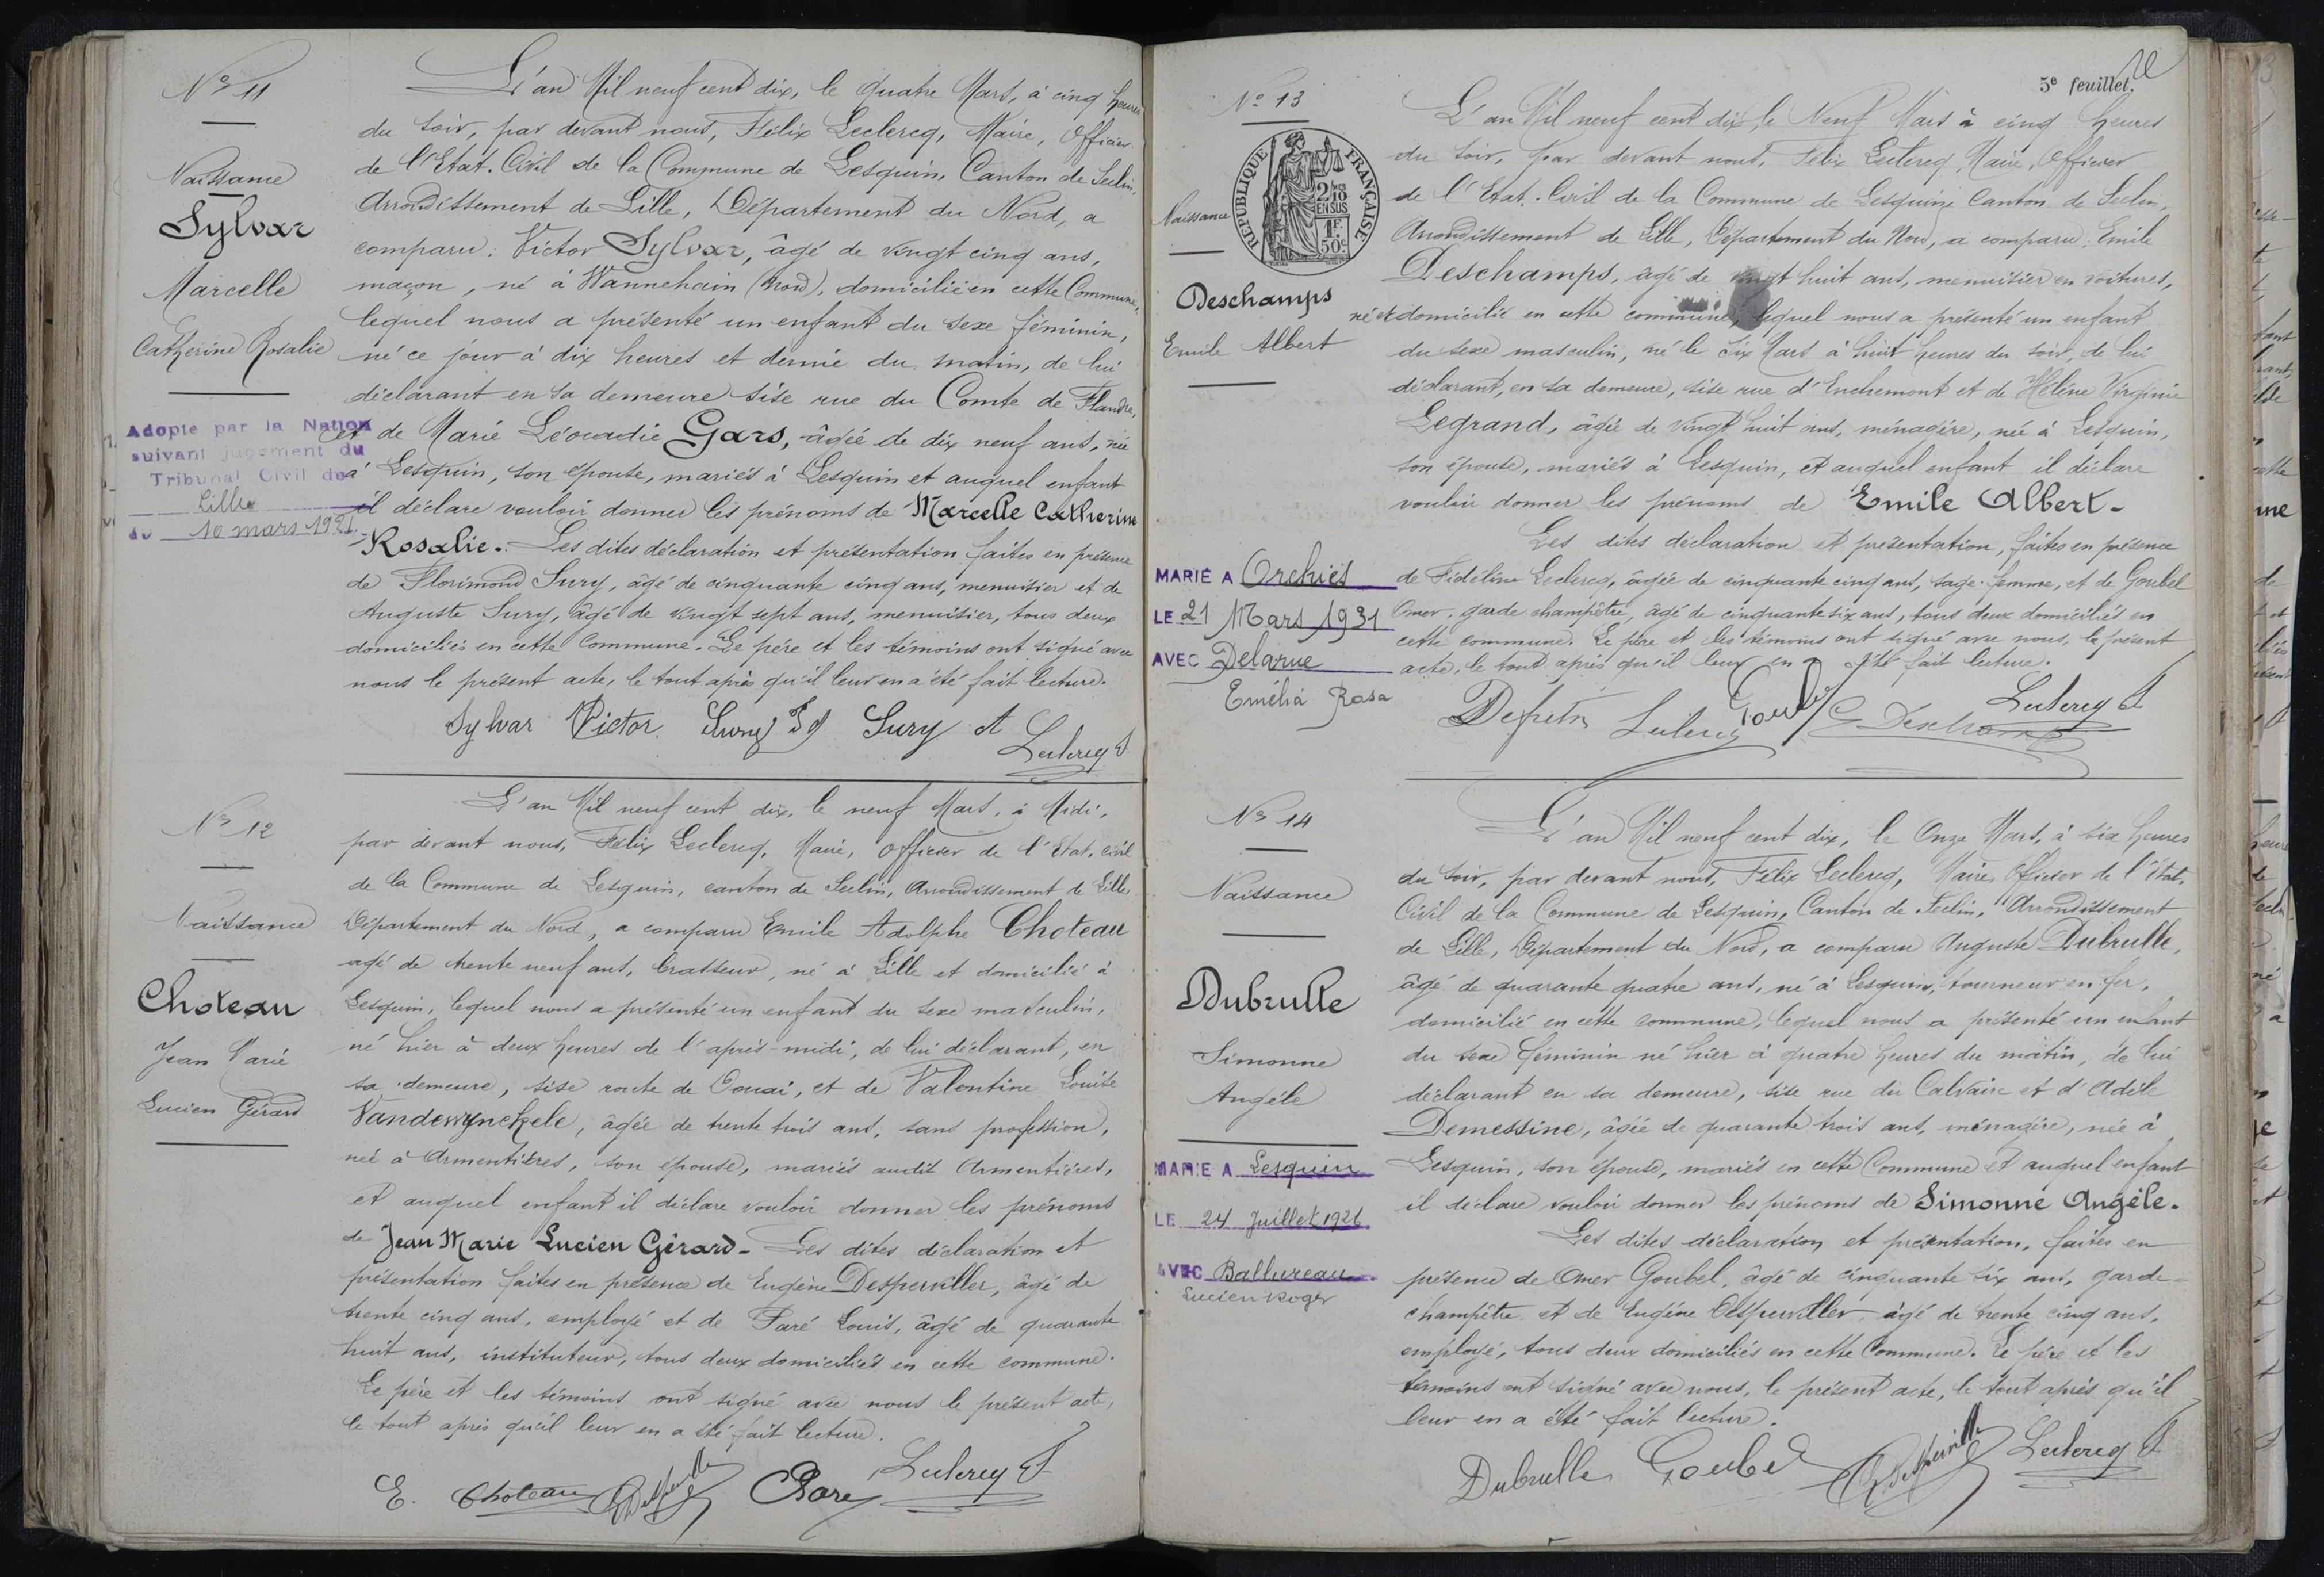 Nº 11
Naissance
Sylvar
Marcelle
Catherine Rosalie
Adopté par la Nation
suivant jugement du
Tribunal Civil de
Lille
du 10 mars 1921
L'an Mil neuf cent dix, le quatre Mars, à cinq heures
du soir, par devant nous, Félix Leclercq, Maire, Officier
de l'Etat-Civil de la Commune de Lesquin, Canton de Seclin,
Arrondissement de Lille, Département du Nord, a
comparu : Victor Sylvar, âgé de vingt cinq ans,
maçon, né à Wannehain (Nord), domicilié en cette Commune,
lequel nous a présenté un enfant du sexe féminin,
né ce jour à dix heures et demie du matin, de lui
déclarant en sa demeure sise rue du Comte de Flandre,
et de Marie Léocadie Gars, âgée de dix neuf ans, née
à Lesquin, son épouse, mariés à Lesquin et auquel enfant
il déclare vouloir donner les prénoms de Marcelle Catherine
Rosalie. Les dites déclaration et présentation faites en présence
de Florimond Sury, âgé de cinquante cinq ans, menuisier et de
Auguste Sury, âgé de vingt sept ans, menuisier, tous deux
domiciliés en cette Commune. Le père et les témoins ont signé avec
nous le présent acte, le tout après qu'il leur en a été fait lecture.
Sylvar Victor Sury Fd Sury A
Leclercq F
Nº 12
Naissance
Choteau
Jean Marie
Lucien Gérard
L'an Mil neuf cent dix, le neuf Mars, à Midi,
par devant nous, Félix Leclercq, Maire, officier de l'Etat-civil
de la Commune de Lesquin, canton de Seclin, Arrondissement de Lille,
Département du Nord, a comparu Emile Adolphe Choteau
agé de trente neuf ans, brasseur, né à Lille et domicilié à
Lesquin, lequel nous a présenté un enfant du sexe masculin,
né hier à deux heures de l'après-midi, de lui déclarant, en
sa demeure, sise route de Douai, et de Valentine Louise
Vandewynckele, âgée de trente trois ans, sans profession,
née à Armentières, son épouse, mariés audit Armentières,
et auquel enfant il déclare vouloir donner les prénoms
de Jean Marie Lucien Gérard. Les dites déclaration et
présentation faites en présence de Eugène Desperviller, âgé de
trente cinq ans, employé et de Paré Louis, âgé de quarante
huit ans, instituteur, tous deux domiciliés en cette commune.
Le père et les témoins ont signé avec nous le présent acte,
le tout après qu'il leur en a été fait lecture.
E. Choteau E Desperviller Paré Leclercq F
5e feuillet.
Nº 13
Naissance
RÉPUBLIQUE FRANÇAISE
2/10 EN SUS
1F 50c
Deschamps
Emile Albert
MARIÉ A Orchies
LE 21 Mars 1931
AVEC Delarue
Emélia Rosa
L'an Mil neuf cent dix, le Neuf Mars à cinq heures
du soir, par devant nous, Félix Leclercq, Maire, Officier
de l'Etat-Civil de la Commune de Lesquin, Canton de Seclin,
Arrondissement de Lille, Département du Nord, a comparu Emile
Deschamps, âgé de vingt huit ans, menuisier en voitures,
né et domicilié en cette commune, lequel nous a présenté un enfant
du sexe masculin, né le six Mars à huit heures du soir, de lui
déclarant, en sa demeure, sise rue d'Enchemont et de Hélène Virginie
Legrand, âgée de vingt huit ans, ménagère, née à Lesquin,
son épouse, mariés à Lesquin, et auquel enfant il déclare
vouloir donner les prénoms de Emile Albert.
Les dites déclaration et présentation, faites en présence
de Fidéline Leclercq, âgée de cinquante cinq ans, sage-femme, et de Goubel
Omer, garde champêtre, âgé de cinquante six ans, tous deux domiciliés en
cette commune. Le père et les témoins ont signé avec nous, le présent
acte, le tout après qu'il leur en a été fait lecture.
Leclercq Goubel E Deschamps Leclercq F
Nº 14
Naissance
Dubrulle
Simonne
Angèle
MARIÉ A Lesquin
LE 24 Juillet 1926
AVEC Ballureau
Lucien Roger
L'an Mil neuf cent dix, le Onze Mars, à six heures
du soir, par devant nous, Félix Leclercq, Maire, Officier de l'état-
Civil de la Commune de Lesquin, Canton de Seclin, Arrondissement
de Lille, Département du Nord, a comparu Auguste Dubrulle,
âgé de quarante quatre ans, né à Lesquin, tourneur en fer,
domicilié en cette commune, lequel nous a présenté un enfant
du sexe féminin né hier à quatre heures du matin, de lui
déclarant en sa demeure, sise rue du Calvaire et d'Adèle
Demessine, âgée de quarante trois ans, ménagère, née à
Lesquin, son épouse, mariés en cette Commune et auquel enfant
il déclare vouloir donner les prénoms de Simonne Angèle.
Les dites déclaration et présentation, faites en
présence de Omer Goubel, âgé de cinquante six ans, garde-
champêtre et de Eugène Desperviller, âgé de trente cinq ans,
employé, tous deux domiciliés en cette Commune. Le père et les
témoins ont signé avec nous, le présent acte, le tout après qu'il
leur en a été fait lecture.
Dubrulle Goubel E Desperviller Leclercq F